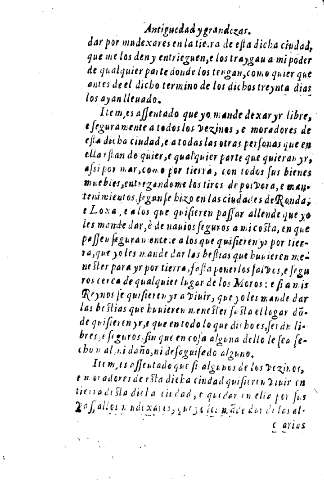 Antiguedad y grandezas.
dar por mudexares en la tierra de esta dicha ciudad,
que me los den y entrieguen, e los traygau a mi poder
de qualquier parte donde los tengan, como quier que
antes de el dicho termino de los dichos treynta dias
los ayan lleuado.
Item, es assentado que yo mande dexar yr libre,
e seguramente a todos los vezinos, e moradores de
esta dicha ciudad, e a todas las otras personas que en
ella estan do quier, e qualquier parte que quieran yr,
assi por mar, como por tierra, con todos sus bienes
muebles, entregandome los tiros de poluora, e man-
tenimientos, segun se hizo en las ciudades de Ronda,
e Loxa, e a los que quisieren passar allende que yo
les mande dar, e de nauios seguros a mi costa, en que
passen seguramente: e a los que quisieren yr por tier-
ra, que yo les mande dar las bestias que huuieren me-
nester para yr por tierra, fasta ponerlos saluos, e segu
ros cerca de qualquier lugar de los Moros: e si a mis
Reynos se quisieren yr a viuir, que yo les mande dar
las bestias que huuieren menester fasta el logar dõ-
de quisieren yr, e que en todo lo que dicho es, serán li-
bres, e seguros, sin que en cosa alguna dello les sea fe-
cho mal, ni daño, ni desaguisado alguno.
Item, es assentado que si algunos de los vezinos,
e moradores de esta dicha ciudad quisieren viuir en
tierra desta dicha ciudad, e quedar en ella por sus
allos mudexares, que yo les mãde dar de los al-
carias